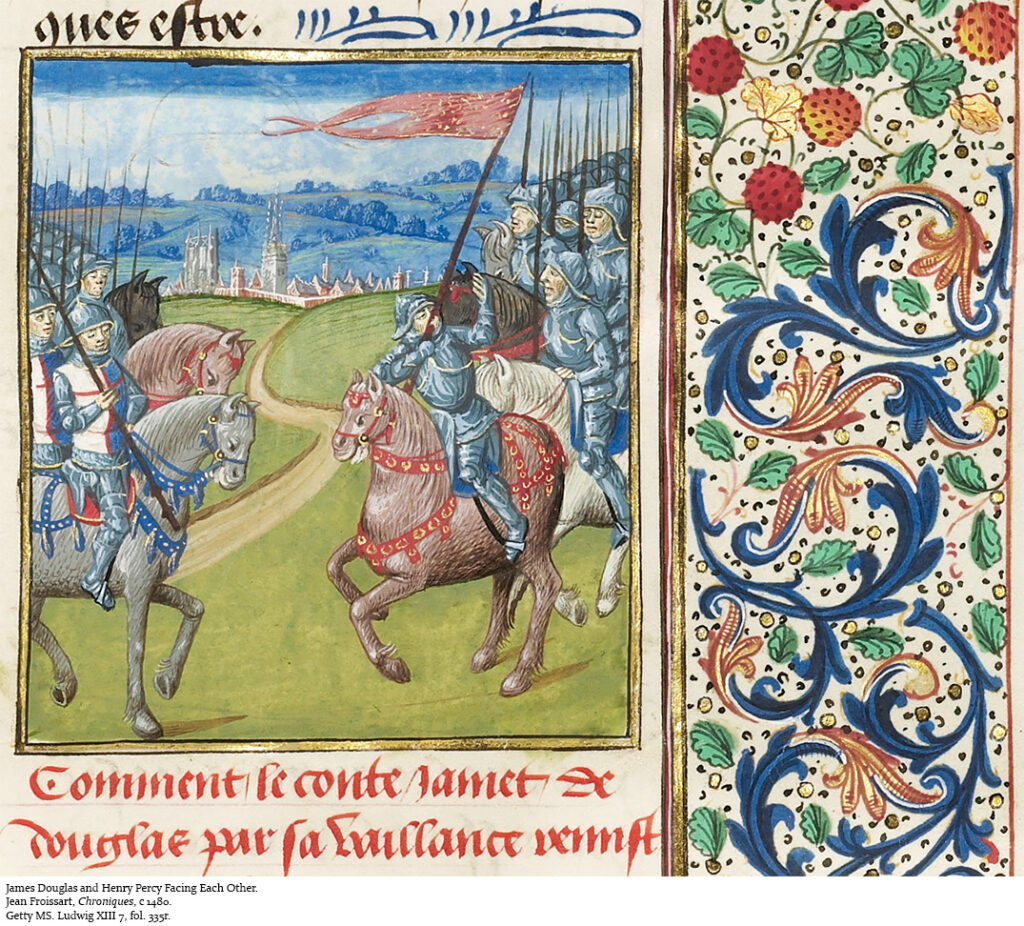 ques estre.
Comment le conte Jamet de
douglas par sa vaillance remist
James Douglas and Henry Percy Facing Each Other.
Jean Froissart, Chroniques, c 1480.
Getty MS. Ludwig XIII 7, fol. 335r.